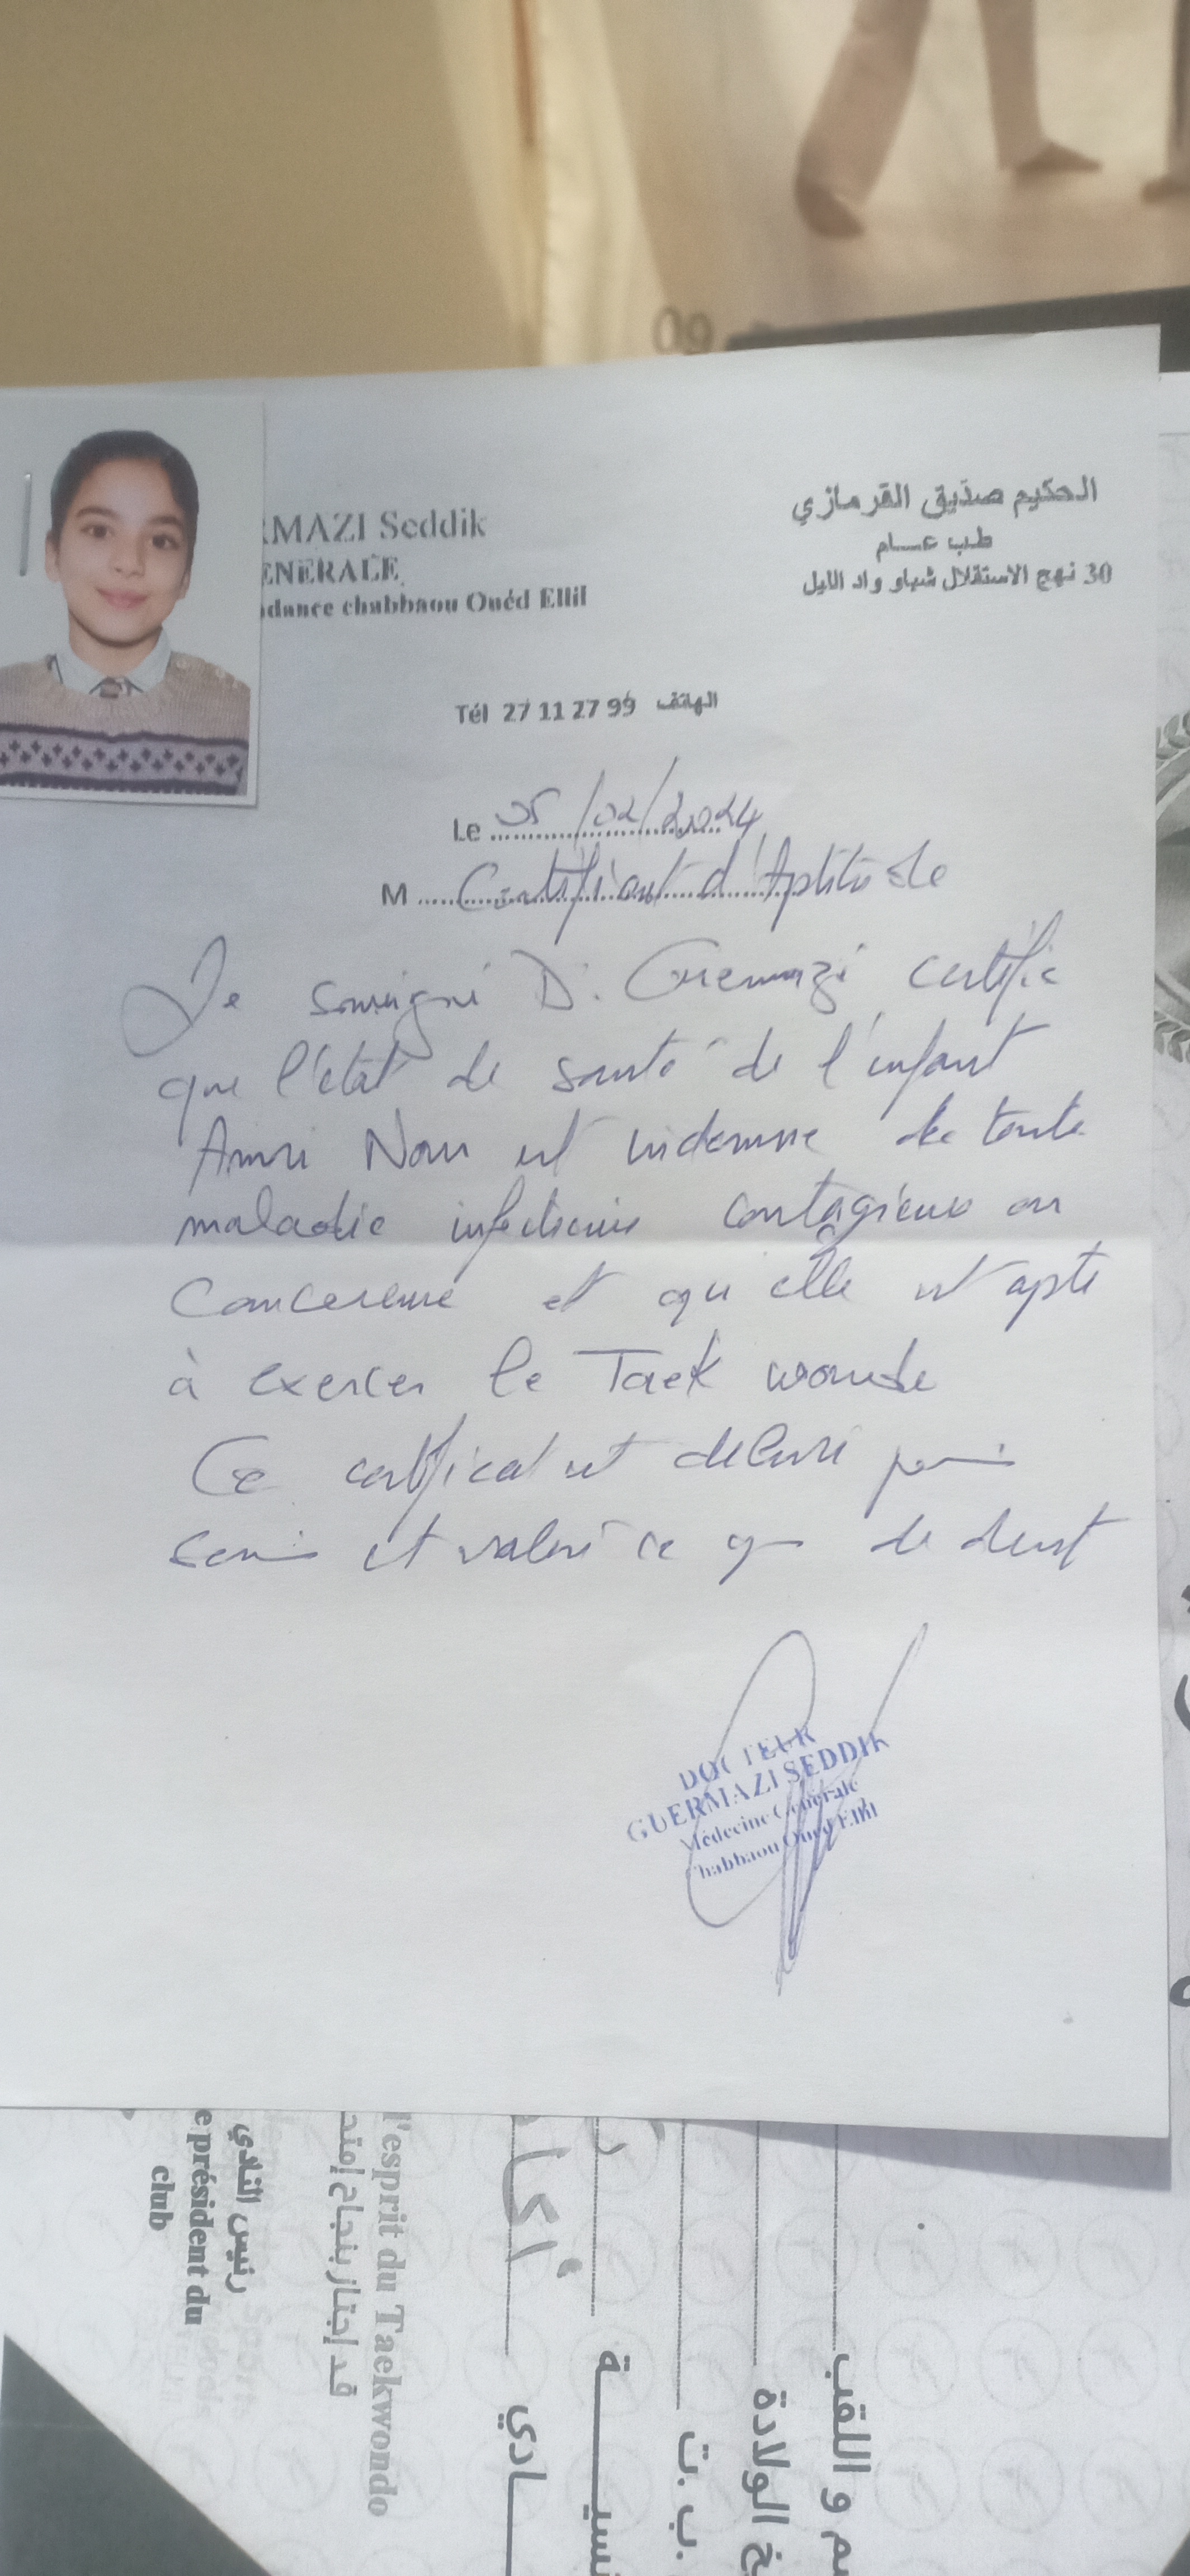 09
RMAZI Seddik
ENERALE
ndance chabbaou Ouéd Ellil
الحكيم صدّيق القرمازي
طب عـــام
30 نهج الاستقلال شباو واد الليل
Tél 27 11 27 99 الهاتف
Le 05/02/2024
M Certificat d'Aptitude
Je soussigné Dr. Guermazi certifie
que l'état de santé de l'enfant
Amri Nour est indemne de toute
maladie infectieuse contagieuse ou
Cancereuse et qu'elle est apte
à exercer le Taek wondo
Ce certificat est délivré pour
servir et valoir ce que de droit
DOCTEUR
GUERMAZI SEDDIK
Médecine Générale
Chabbaou Oued Ellil
e président du
club
رئيس النادي
l'esprit du Taekwondo
قد إجتاز بنجاح إمتح
أكا
ـادي
نسيــــة
ب. ت
خ الولادة
م و اللقب